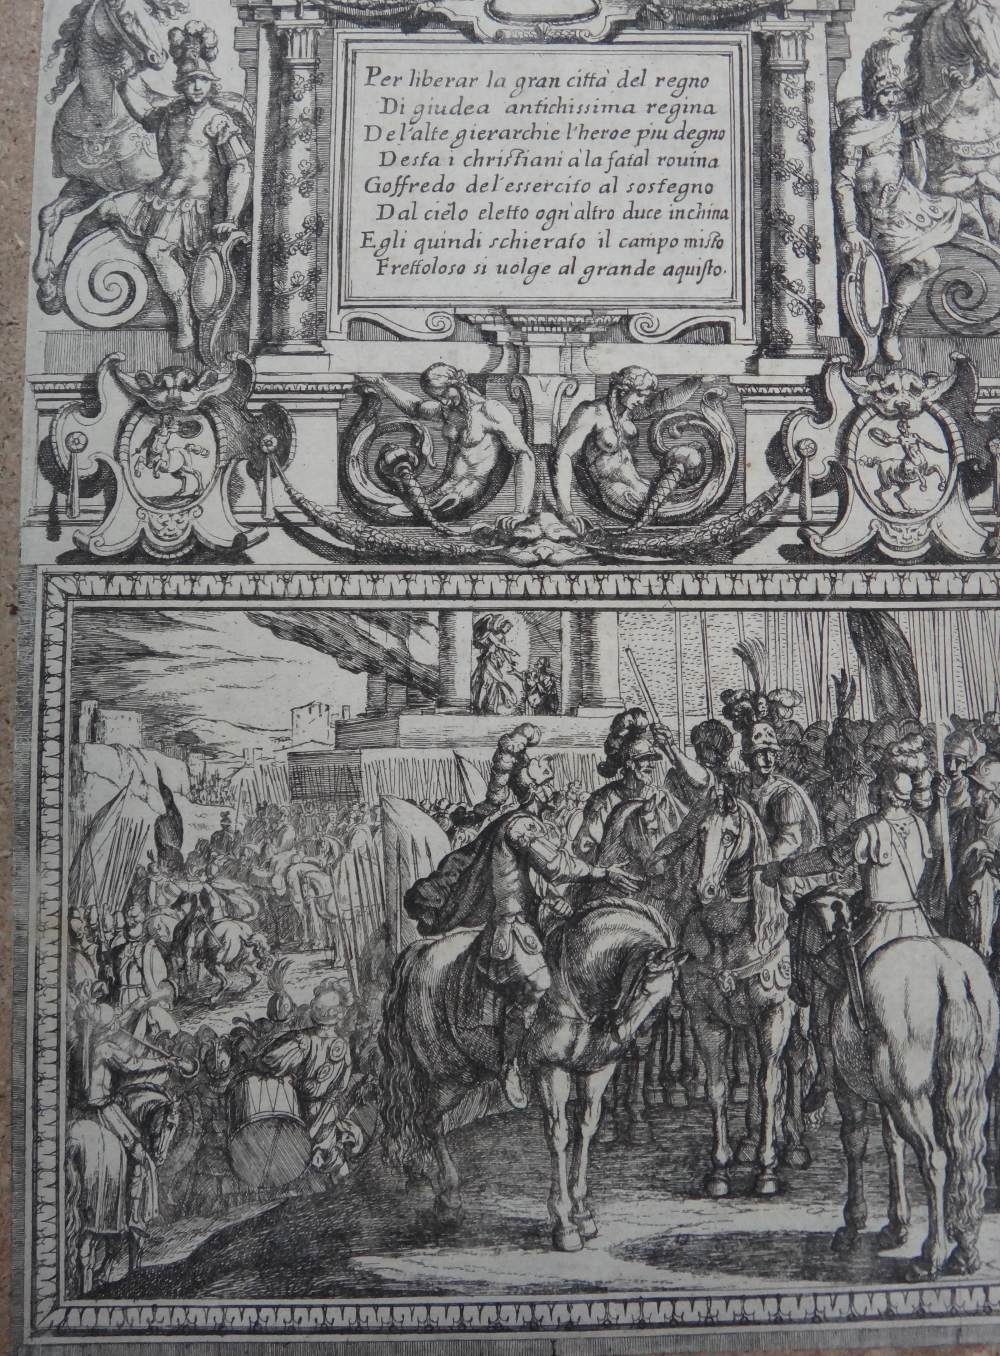 Per liberar la gran città del regno
Di giudea antichissima regina
De l'alte gierarchie l'heroe piu degno
Desta i christiani à la fatal rouina
Goffredo del'essercito al sostegno
Dal cielo eletto ogn'altro duce inchina
Egli quindi schierato il campo misto
Frettoloso si uolge al grande aquisto.